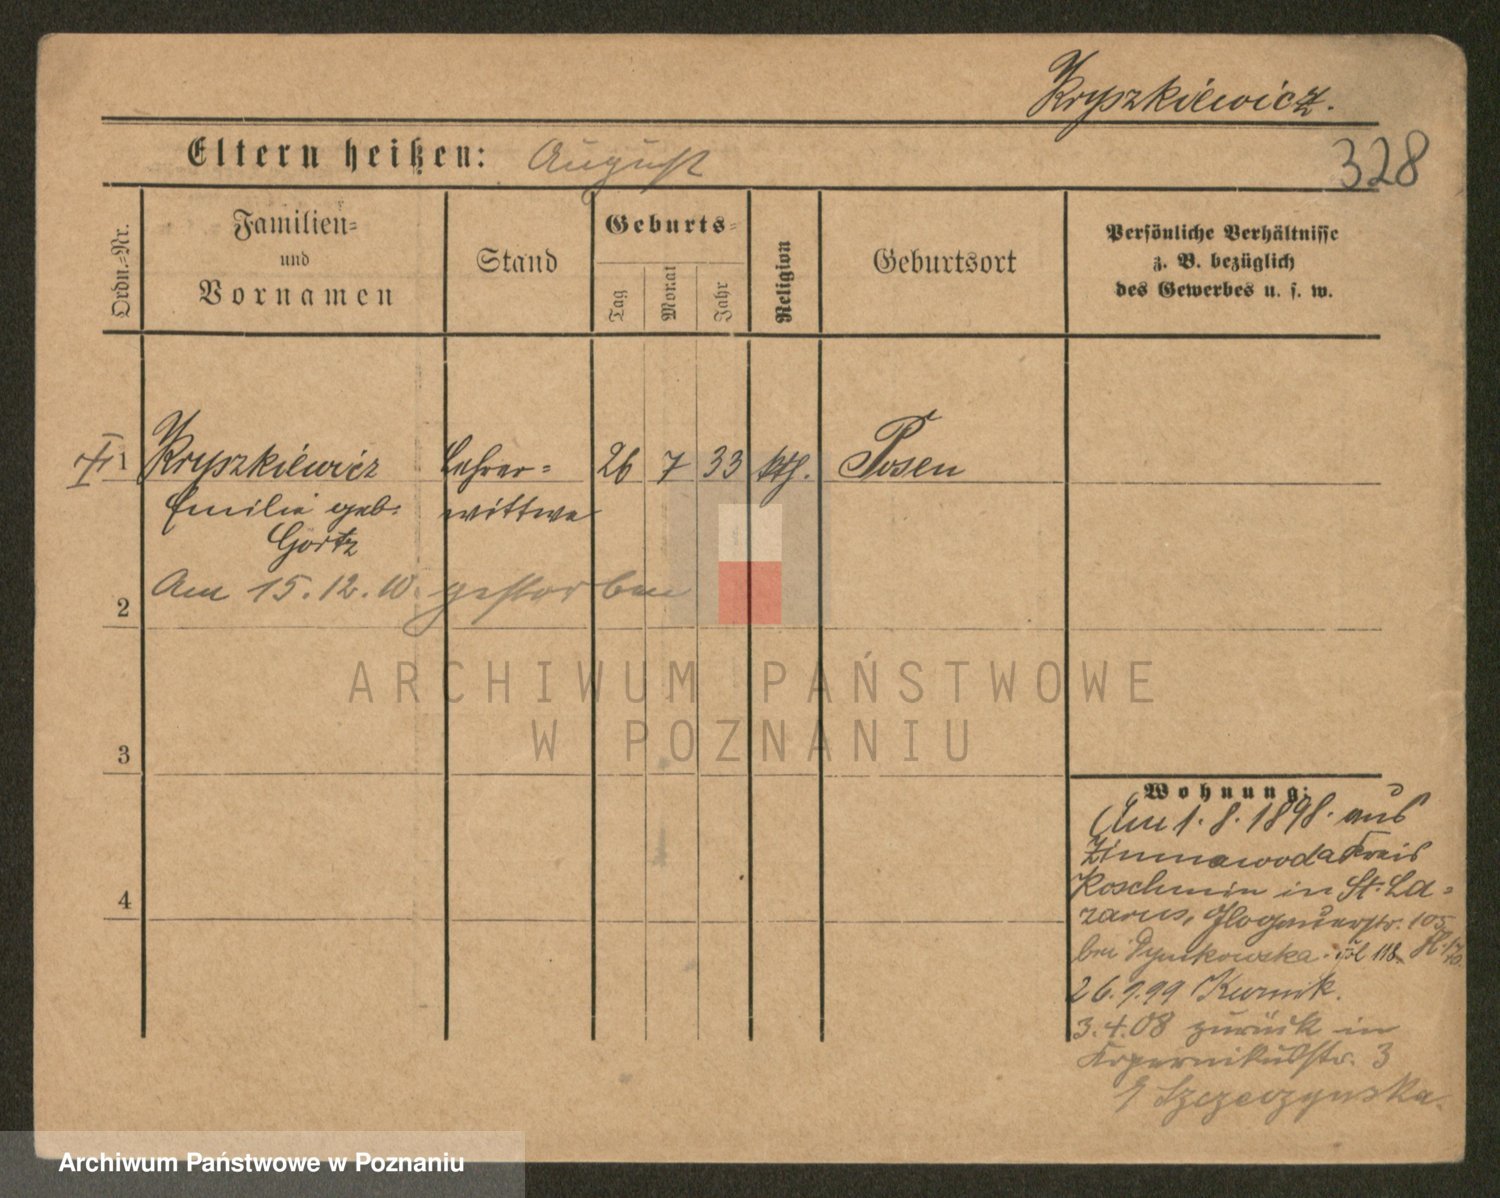 Kryszkiewicz.
328
Eltern heißen: August
Ordn.-Nr.
Familien-
und
Vornamen
Stand
Geburts-
Tag
Monat
Jahr
Religion
Geburtsort
Persönliche Verhältnisse
z. B. bezüglich
des Gewerbes u. s. w.
1 Kryszkiewicz Lehrer= 26 7 33 kth. Posen
Emilie geb. wittwe
Görtz
Am 15.12.10. gestorben
2
3
4
ARCHIWUM PAŃSTWOWE
W POZNANIU
Wohnung:
Am 1.8.1898. aus
Zimnawoda Kreis
Koschmin in St. La=
zarus, Glogauerstr. 105
bei 118
26.9.99 Kurnik.
3.4.08 zurück in
Kopernikusstr. 3
Szczerzynska.
Archiwum Państwowe w Poznaniu